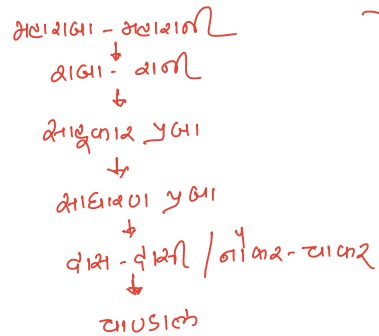 મહારાજા - મહારાની
રાજા - રાની
સાહૂકાર પ્રજા
સાધારણ પ્રજા
દાસ - દાસી / નૌકર - ચાકર
ચાણ્ડાલ